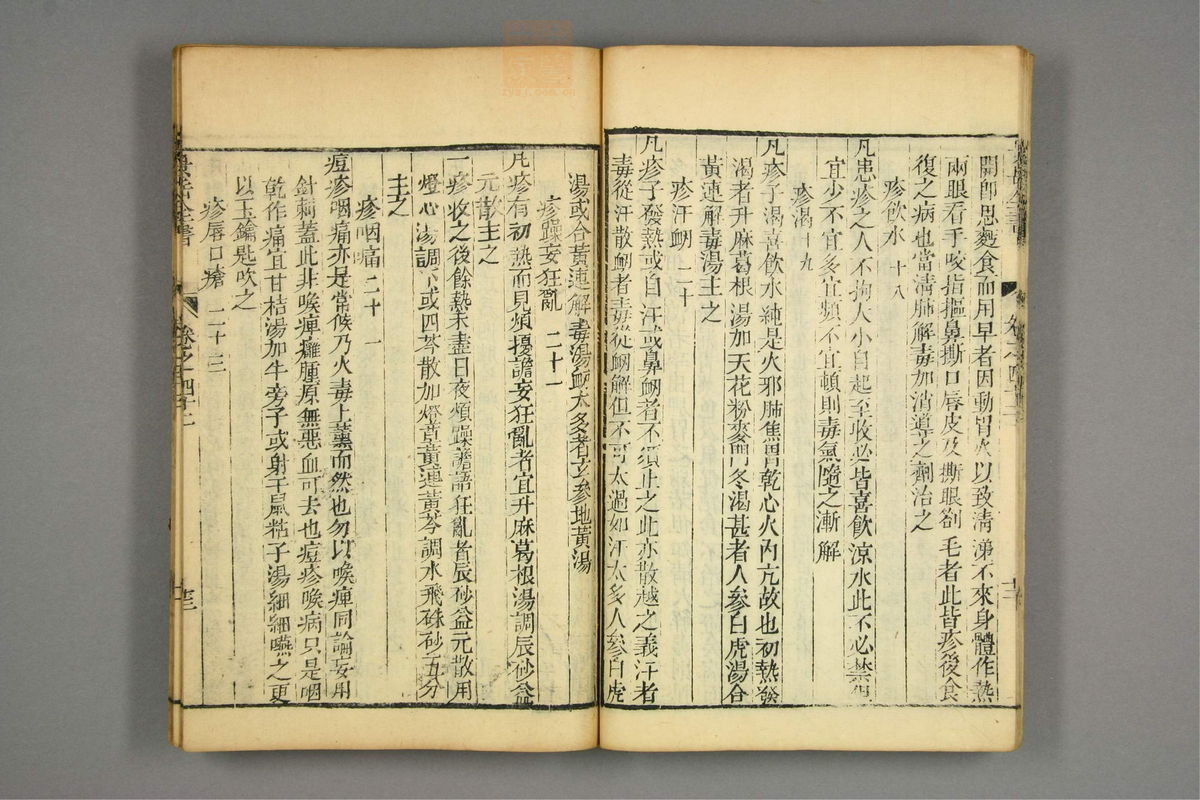 開卽思麪食而用早者因動胃火以致清涕不來身體作熱
兩眼看手咬指摳鼻撕口唇皮及撕眼劄毛者此皆疹後食
復之病也當清肺解毒加消導之劑治之
疹飲水 十八
凡患疹之人不拘大小自起至收必皆喜飲涼水此不必禁但
宜少不宜多宜頻不宜頓則毒氣隨之漸解
疹渴十九
凡疹子渴喜飲水純是火邪肺焦胃乾心火內亢故也初熱發
渴者升麻葛根湯加天花粉麥門冬渴甚者人參白虎湯合
黃連解毒湯主之
疹汗衂 二十
凡疹子發熱或自汗或鼻衂者不須止之此亦散越之義汗者
毒從汗散衂者毒從衂解但不可太過如汗太多人參白虎
湯或合黃連解毒湯衂太多者玄參地黃湯
疹躁妄狂亂 二十一
凡疹有初熱而見煩擾譫妄狂亂者宜升麻葛根湯調辰砂益
元散主之
一疹收之後餘熱未盡日夜煩躁譫語狂亂者辰砂益元散用
燈心湯調下或四苓散加燈草黃連黃芩調水飛硃砂五分
主之
疹咽痛二十一
痘疹咽痛亦是常候乃火毒上薰而然也勿以喉痺同論妄用
針刺蓋此非喉痺癰腫原無惡血可去也痘疹喉病只是咽
乾作痛宜甘桔湯加牛旁子或射干鼠粘子湯細細嚥之更
以玉鑰匙吹之
疹唇口瘡 二十三
景岳全書
卷之四十二
十三